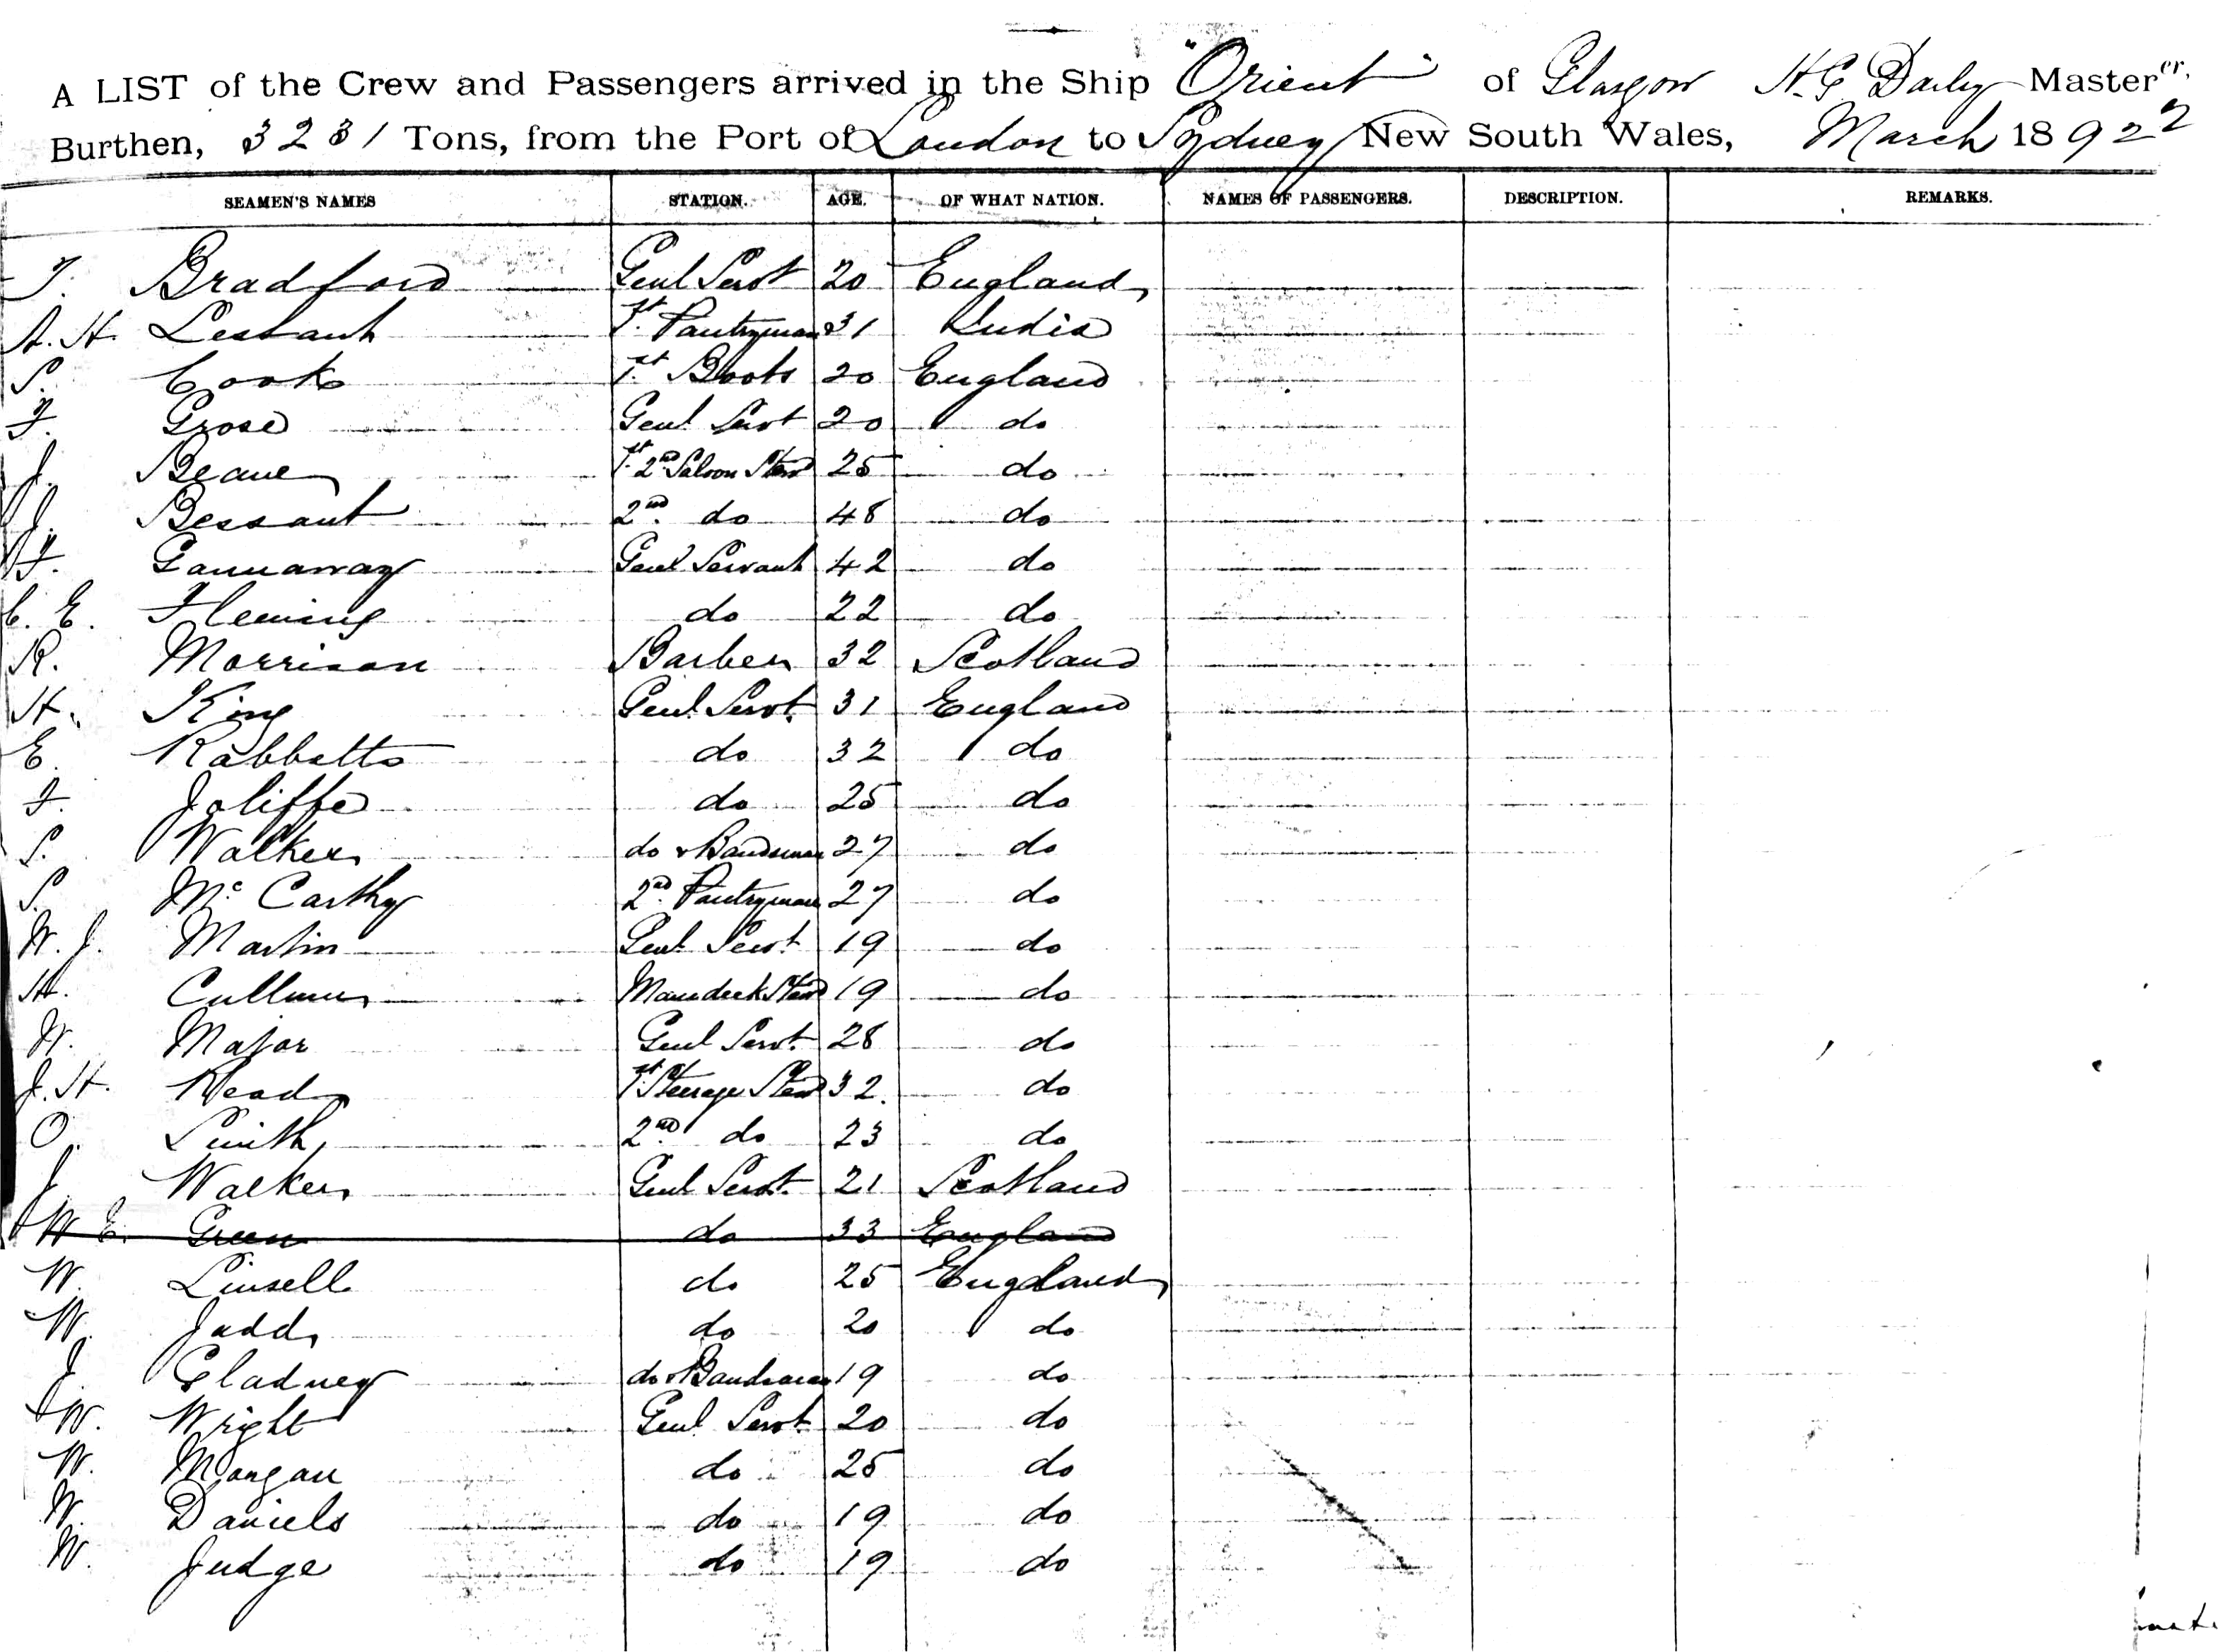 A LIST of the Crew and Passengers arrived in the Ship "Orient" of Glasgow Master
Burthen, 3231 Tons, from the Port of London to Sydney New South Wales, March 1892
SEAMEN'S NAMES STATION. AGE. OF WHAT NATION. NAMES OF PASSENGERS. DESCRIPTION. REMARKS.
T. Bradford Genl Servt 20 England
A. H. 1st Pantryman 31 India
S. Cook 1st Boots 20 England
F. Grose Genl Servt 20 do
J. Beane 1st 2nd Saloon Stewd 25 do
J. Bessant 2nd do 48 do
F. Gannaway Genl Servant 42 do
C. E. Fleming do 22 do
R. Morrison Barber 32 Scotland
H. King Genl Servt 31 England
E. Rabbetts do 32 do
F. Joliffe do 25 do
S. Walker do & Bandsman 27 do
S. Mc Carthy 2nd Pantryman 27 do
W. J. Martin Genl Servt 19 do
H. 19 do
W. Major Genl Servt 28 do
J. H. Read 1st Steerage Stewd 32 do
O. Smith 2nd do 23 do
J Walker Genl Servt 21 Scotland
W E. Green do 33 England
W. Linsell do 25 England
W. Judd do 20 do
J Gladney do & Bandsman 19 do
W. Wright Genl Servt 20 do
W. Morgan do 25 do
W. Daniels do 19 do
W. Judge do 19 do